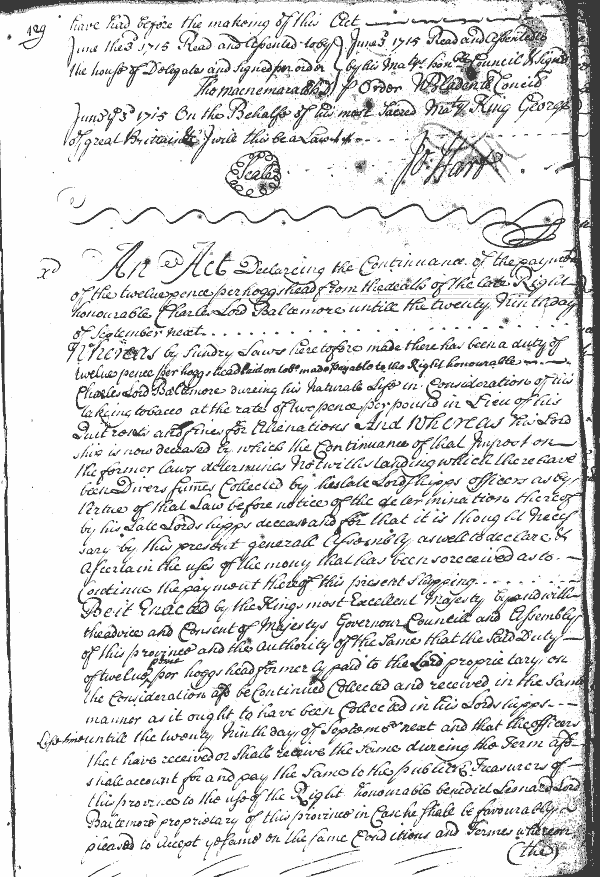 129
have had before the making of this Act
June the 3d 1715 Read and assented to by
the house of Delegates and signed per order
Tho macnemara Cl h D
June 3 1715 Read and assented to
by his Majtys honble Council & signed
p Order W Bladen Cl Concil
June ye 3d 1715 On the Behalfe of his most Sacred Maty King George
of great Brittain &c I will this be a Law
Seale
Jo: Hart
xd
An Act Declareing the Continuance of the payment
of the twelve pence per hoggshead from the death of the late Right
honourable Charles Lord Baltemore untill the twenty Ninth day
of September next
Whereas by Sundry Laws heretofore made there has been a duty of
twelve pence per hoggshead laid on tobo made payable to the Right honourable
Charles Lord Baltemore dureing his Naturale Life in Consideration of his
taking tobacco at the rate of two pence per pound in Lieu of his
Quit rents and fines for Allienations And Whereas his Lord
ship is now deceased by which the Continuance of that Impost on
the former laws determines Notwithstanding which there have
been Divers sumes Collected by his late Lordshipps officers as by
Virtue of that Law before notice of the determination thereof
by his Late Lordshipps decease and for that it is thought Neces
sary by this present generall Assembly as well to declare &
Ascertain the uses of the mony that has been so received as to
Continue the payment thereof this present shipping
Be it Enacted by the Kings most Excellent Majesty by and with
the advice and Consent of Majestys Governour Councill and Assembly
of this province and the Authority of the Same that the said Duty
of twelve pence per hoggshead formerly paid to the Lord proprietary on
the Consideration afd be Continued Collected and received in the Same
manner as it ought to have been Collected in his Lordshipps
Life time untill the twenty Ninth day of September next and that the officers
that have received or shall receive the Same dureing the Term afsd
shall account for and pay the Same to the publick Treasurers of
this province to the use of the Right honourable benedict Leonard Lord
Baltemore proprietary of this province in Case he shall be favourably
pleased to Accept ye same on the same Conditions and Termes whereon
(the)